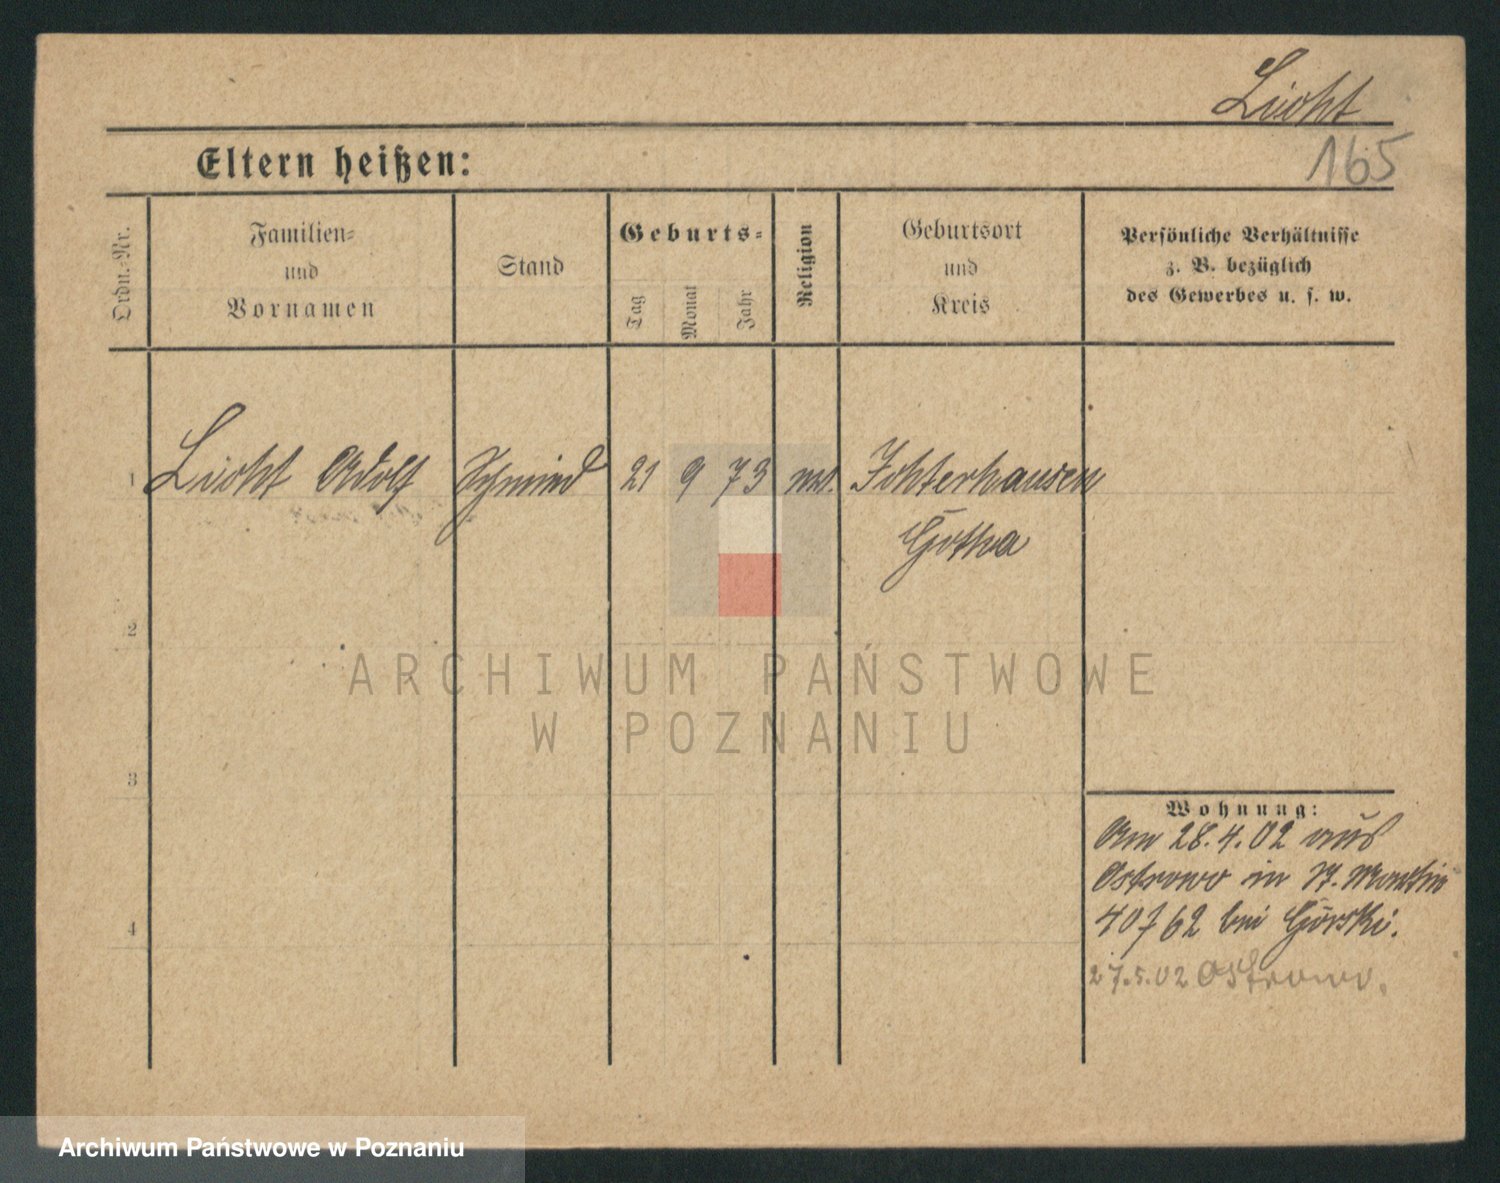 Licht
165
Eltern heißen:
Ordn.-Nr.
Familien-
und
Vornamen
Stand
Geburts-
Tag
Monat
Jahr
Religion
Geburtsort
und
Kreis
Persönliche Verhältnisse
z. B. bezüglich
des Gewerbes u. s. w.
1 Licht Adolf Schmied 21 9 73 Ichterhausen
Gotha
2
3
4
ARCHIWUM PAŃSTWOWE
W POZNANIU
Wohnung:
Am 28.4.02 aus
Ostrowo in St. Martin
bei Górski.
27.5.02 Ostrowo.
Archiwum Państwowe w Poznaniu